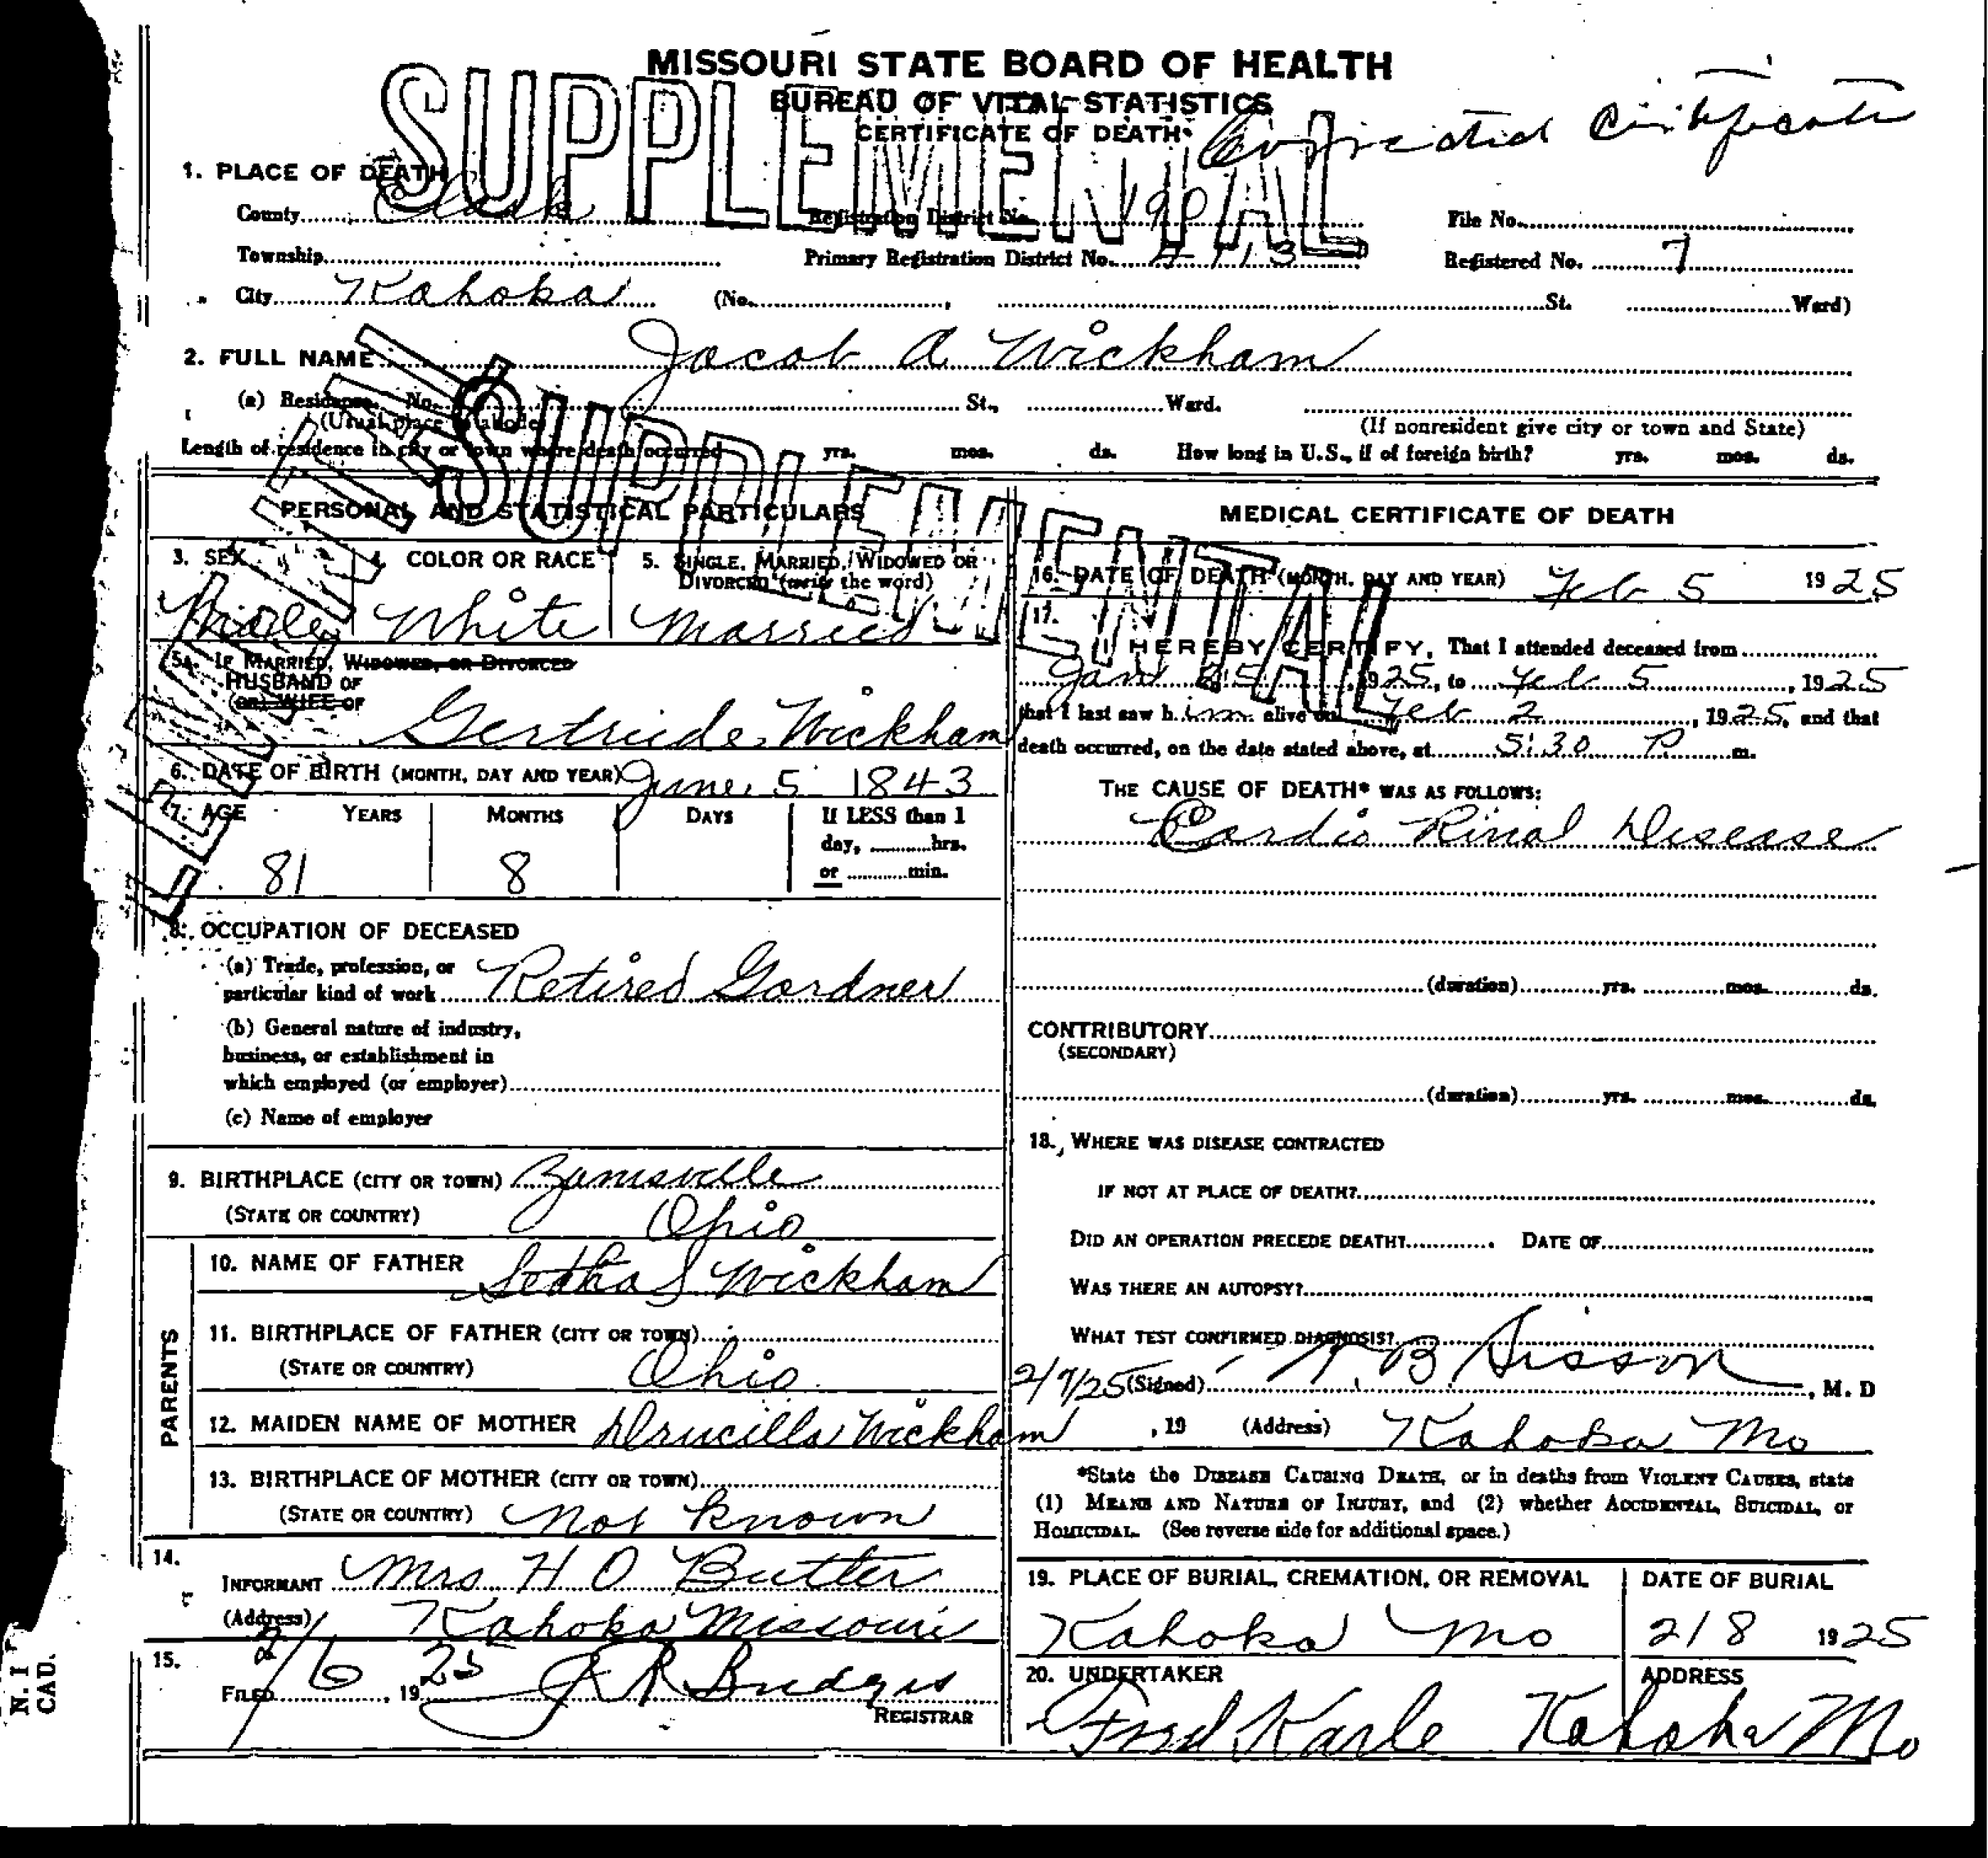 MISSOURI STATE BOARD OF HEALTH
BUREAU OF VITAL STATISTICS
CERTIFICATE OF DEATH
Corrected Certificate
SUPPLEMENTAL
1. PLACE OF DEATH
County Clark Registration District No. 190 File No.
Township Primary Registration District No. 4113 Registered No. 7
City Kahoka (No. , St. Ward)
2. FULL NAME Jacob A Wickham
(a) Residence. No. St., Ward.
(Usual place of abode) (If nonresident give city or town and State)
Length of residence in city or town where death occurred yrs. mos. ds. How long in U.S., if of foreign birth? yrs. mos. ds.
SUPPLEMENTAL
SUPPLEMENTAL
PERSONAL AND STATISTICAL PARTICULARS
3. SEX 4. COLOR OR RACE 5. SINGLE, MARRIED, WIDOWED OR
DIVORCED (write the word)
Male White Married
5A. IF MARRIED, WIDOWED, OR DIVORCED
HUSBAND OF
(OR) WIFE OF
Gertrude Wickham
6. DATE OF BIRTH (MONTH, DAY AND YEAR) June 5 1843
7. AGE YEARS MONTHS DAYS If LESS than 1
day, hrs.
or min.
81 8
8. OCCUPATION OF DECEASED
(a) Trade, profession, or
particular kind of work Retired Gardner
(b) General nature of industry,
business, or establishment in
which employed (or employer)
(c) Name of employer
9. BIRTHPLACE (CITY OR TOWN) Zanisville
(STATE OR COUNTRY) Ohio
PARENTS
10. NAME OF FATHER Wickham
11. BIRTHPLACE OF FATHER (CITY OR TOWN)
(STATE OR COUNTRY) Ohio
12. MAIDEN NAME OF MOTHER Drucilla Wickham
13. BIRTHPLACE OF MOTHER (CITY OR TOWN)
(STATE OR COUNTRY) Not Known
14.
INFORMANT Mrs H O Butler
(Address) Kahoka Missouri
15.
FILED 2/6, 1925 J R Bridges
REGISTRAR
MEDICAL CERTIFICATE OF DEATH
16. DATE OF DEATH (MONTH, DAY AND YEAR) Feb 5 1925
17.
I HEREBY CERTIFY, That I attended deceased from
Jan 25, 1925, to Feb 5, 1925
that I last saw him alive on Feb 2, 1925, and that
death occurred, on the date stated above, at 5:30 P m.
THE CAUSE OF DEATH* WAS AS FOLLOWS:
Cardio Rinal Disease
(duration) yrs. mos. ds.
CONTRIBUTORY
(SECONDARY)
(duration) yrs. mos. ds.
18. WHERE WAS DISEASE CONTRACTED
IF NOT AT PLACE OF DEATH?
DID AN OPERATION PRECEDE DEATH? DATE OF
WAS THERE AN AUTOPSY?
WHAT TEST CONFIRMED DIAGNOSIS?
2/7/25 (Signed) B Sisson, M. D
, 19 (Address) Kahoka Mo
*State the DISEASE CAUSING DEATH, or in deaths from VIOLENT CAUSES, state
(1) MEANS AND NATURE OF INJURY, and (2) whether ACCIDENTAL, SUICIDAL, or
HOMICIDAL. (See reverse side for additional space.)
19. PLACE OF BURIAL, CREMATION, OR REMOVAL DATE OF BURIAL
Kahoka Mo 2/8 1925
20. UNDERTAKER ADDRESS
Fred Karle Kahoka Mo
N. I
CAU.